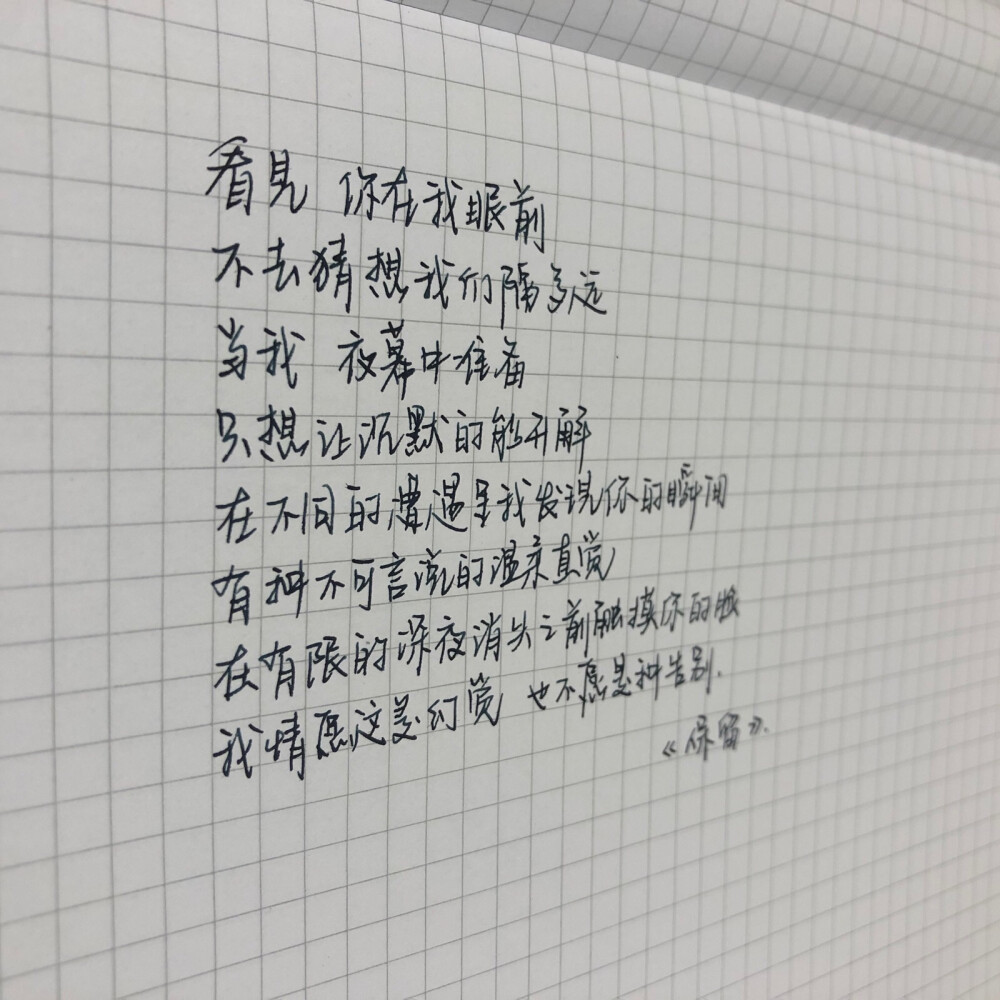 看見 你在我眼前
不去猜想我们隔多远
当我 夜幕中准备
只想让沉默的能开解
在不同的遭遇里我发现你的瞬间
有种不可言说的温柔直觉
在有限的深夜消失之前触摸你的脸
我情愿这是幻觉 也不愿是种告别.
《保留》.